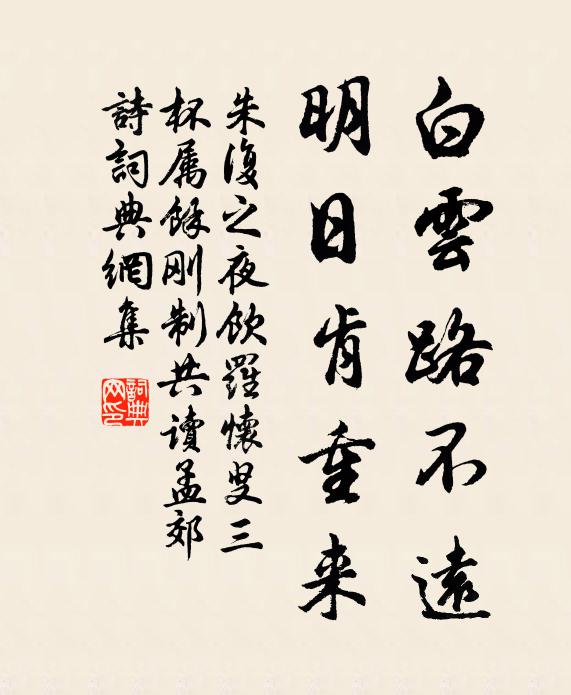 白雲路不遠
明日肯重来
朱復之夜飲羅懷叟三
杯属餘剛制共讀孟郊
詩詞典網集
詞典
网印